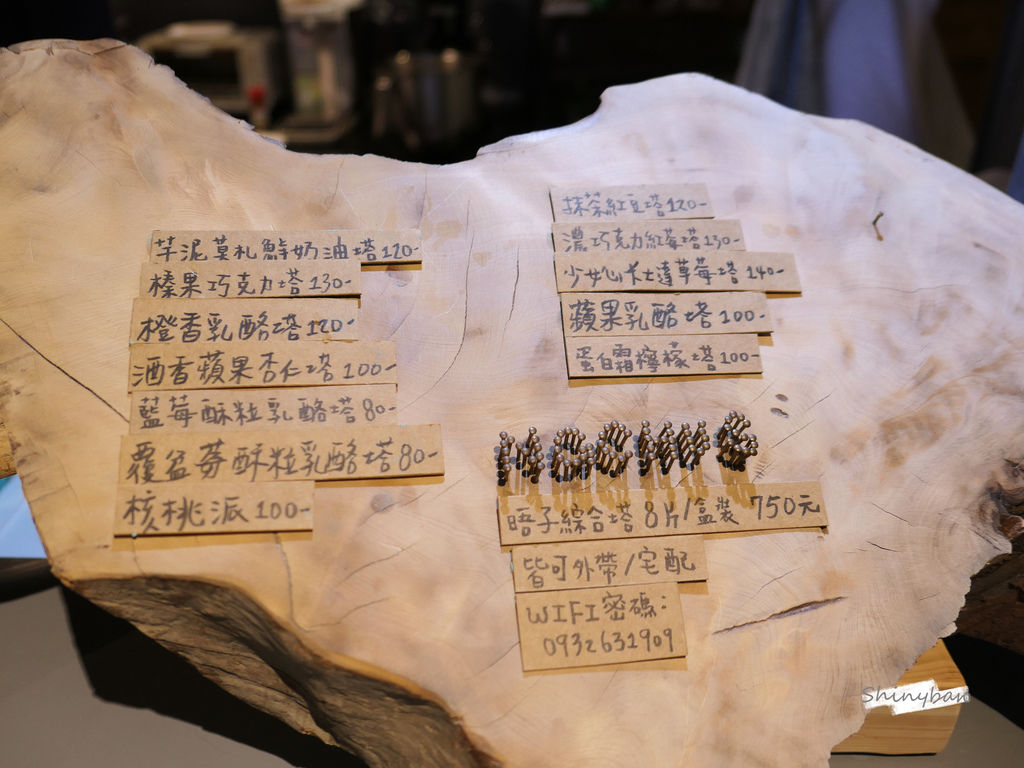 芋泥莫札鮮奶油塔120-
榛果巧克力塔130-
橙香乳酪塔120-
酒香蘋果杏仁塔100-
藍莓酥粒乳酪塔80-
覆盆莓酥粒乳酪塔80-
核桃派100-
抹茶紅豆塔120-
濃巧克力紅莓塔130-
少女心卡士達草莓塔140-
蘋果乳酪塔100-
蛋白霜檸檬塔100-
晤子綜合塔8片/盒裝 750元
皆可外帶/宅配
WIFI密碼:
0932631909
Shinyban